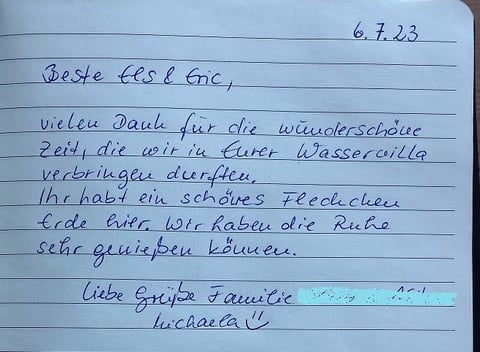 6.7.23
Beste Els & Eric,
vielen Dank für die wunderschöne
Zeit, die wir in Eurer Wasservilla
verbringen durften.
Ihr habt ein schönes Fleckchen
Erde hier. Wir haben die Ruhe
sehr genießen können.
Liebe Grüße Familie
Michaela